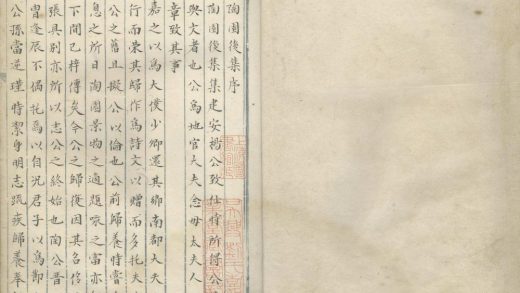 陶園後集序
陶園後集集建安楊公致仕時所得公
與文者也公為地官大夫念母太夫人
章致其事
嘉之以為太僕少卿還其鄉南都大夫
行而榮其歸作為詩文以贈而多托夫
公之舊且擬公以倫也公前歸養時嘗
息之所曰陶園景物之適題咏之富亦
下間已梓傳矣今公之歸復因其名
張其別亦所以志公之終始也陶公晉
冑逢辰不偶托焉以自况君子以為鄙
公孫當逆瑾時潔身明志疏疾歸養奉